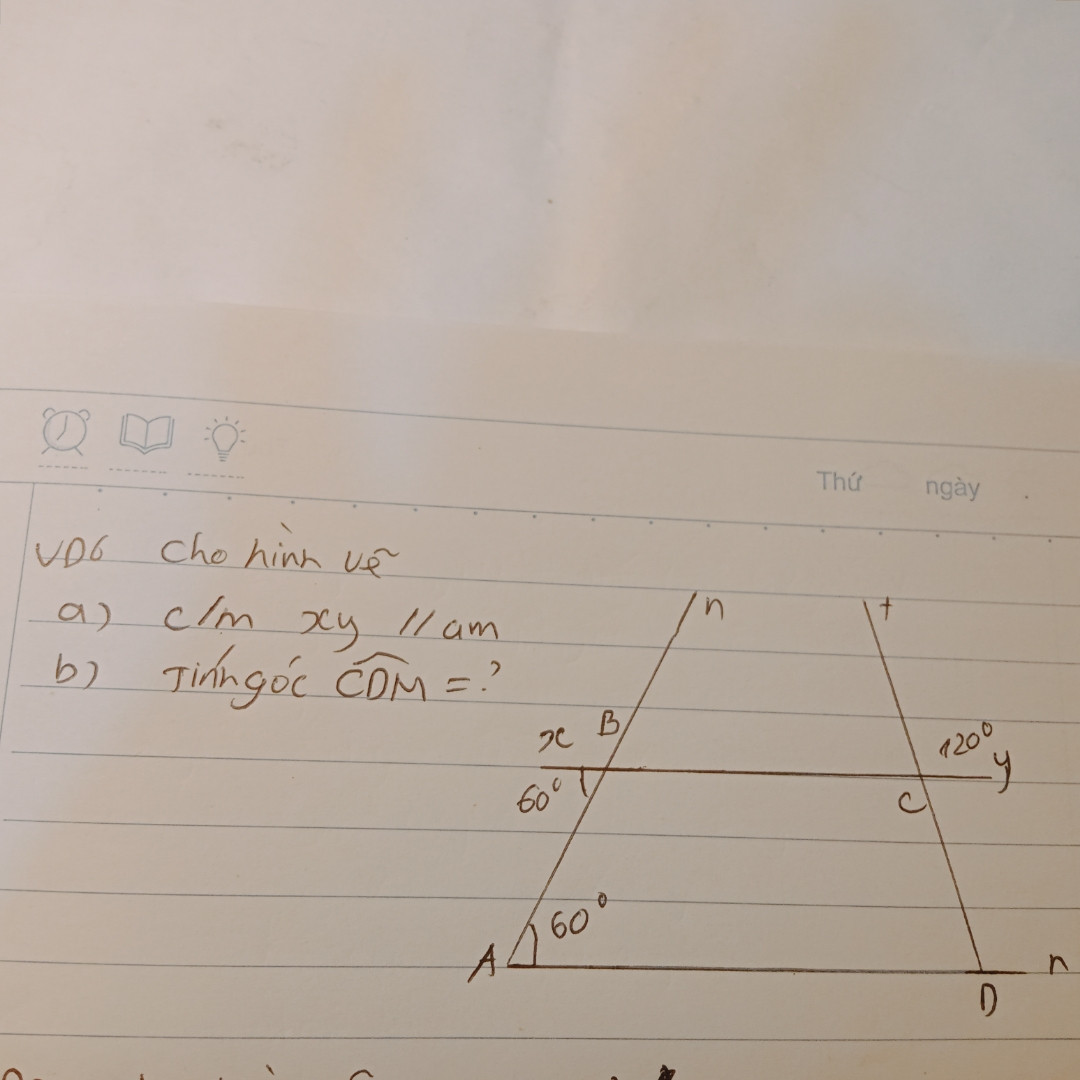 Thứ ngày .
VD6 Cho hình vẽ
a) c/m xy // am
b) Tính góc CDM = ?
n t
x B 120° y
60° C
60°
A D n